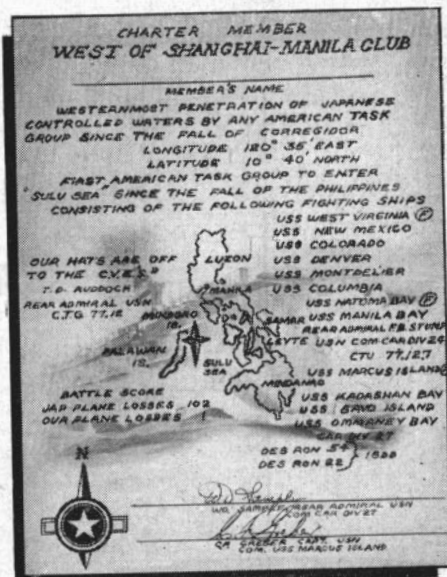 CHARTER MEMBER
WEST OF SHANGHAI-MANILA CLUB
MEMBER'S NAME
WESTERNMOST PENETRATION OF JAPANESE
CONTROLLED WATERS BY ANY AMERICAN TASK
GROUP SINCE THE FALL OF CORREGIDOR
LONGITUDE 120° 35' EAST
LATITUDE 10° 40' NORTH
FIRST AMERICAN TASK GROUP TO ENTER
"SULU SEA" SINCE THE FALL OF THE PHILIPPINES
CONSISTING OF THE FOLLOWING FIGHTING SHIPS
USS WEST VIRGINIA (F)
USS NEW MEXICO
USS COLORADO
USS DENVER
USS MONTPELIER
USS COLUMBIA
USS NATOMA BAY (F)
USS MANILA BAY
REAR ADMIRAL F.B. STUMP
USN COM CAR DIV 24
CTU 77.12.7
USS MARCUS ISLAND
USS KADASHAN BAY
USS SAVO ISLAND
USS OMMANEY BAY
CAR DIV 27
DES RON 54
DES RON 22
OUR HATS ARE OFF
TO THE C.V.E.'S"
T. D. RUDDOCK
REAR ADMIRAL USN
C.T.G 77.12
LUZON
MANILA
MINDORO
IS.
SAMAR
LEYTE
PALAWAN
IS.
SULU
SEA
MINDANAO
BATTLE SCORE
JAP PLANE LOSSES 102
OUR PLANE LOSSES 1
N
W.D. SAMPLE REAR ADMIRAL USN
COM CAR DIV 27
CF GREBER CAPT. USN
COM. USS MARCUS ISLAND